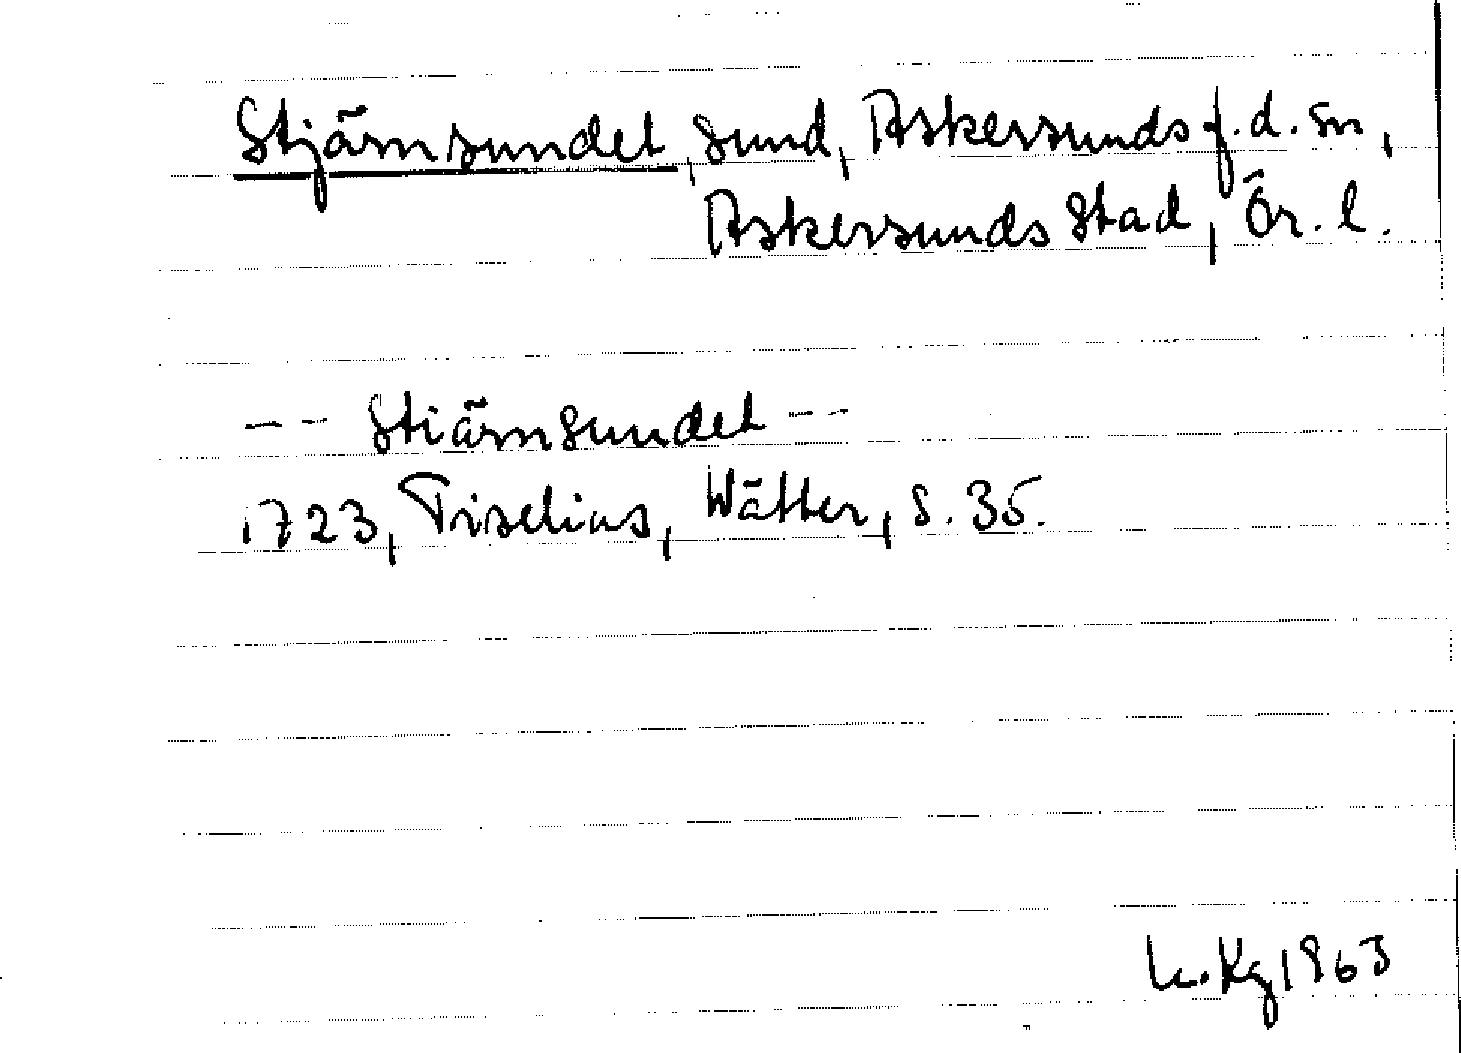 Stjärnsundet, sund, Askersunds f.d. sn,
Askersunds stad, Ör. l.
-- Stiärnsundet --
1723, Tiselius, Wätter, s. 35.
Kg 1963